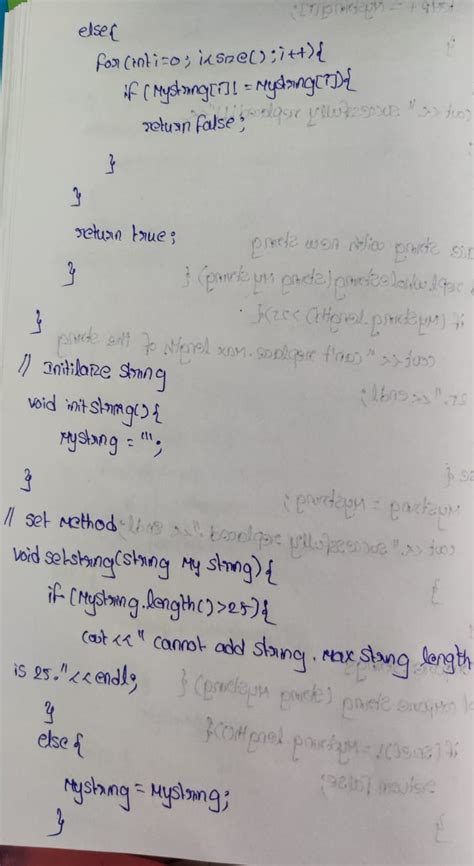 else{
for(int i=0; i<size(); i++){
if (Mystring[i]! = Mystring[i]){
return false;
}
}
return true;
}
}
// Initilaize string
void initstring(){
Mystring = "";
}
// set Method
void setstring(string My string){
if (Mystring.length()>25){
cout << " cannot add string. Max string length
is 25."<<endl;
}
else{
Mystring = Mystring;
}